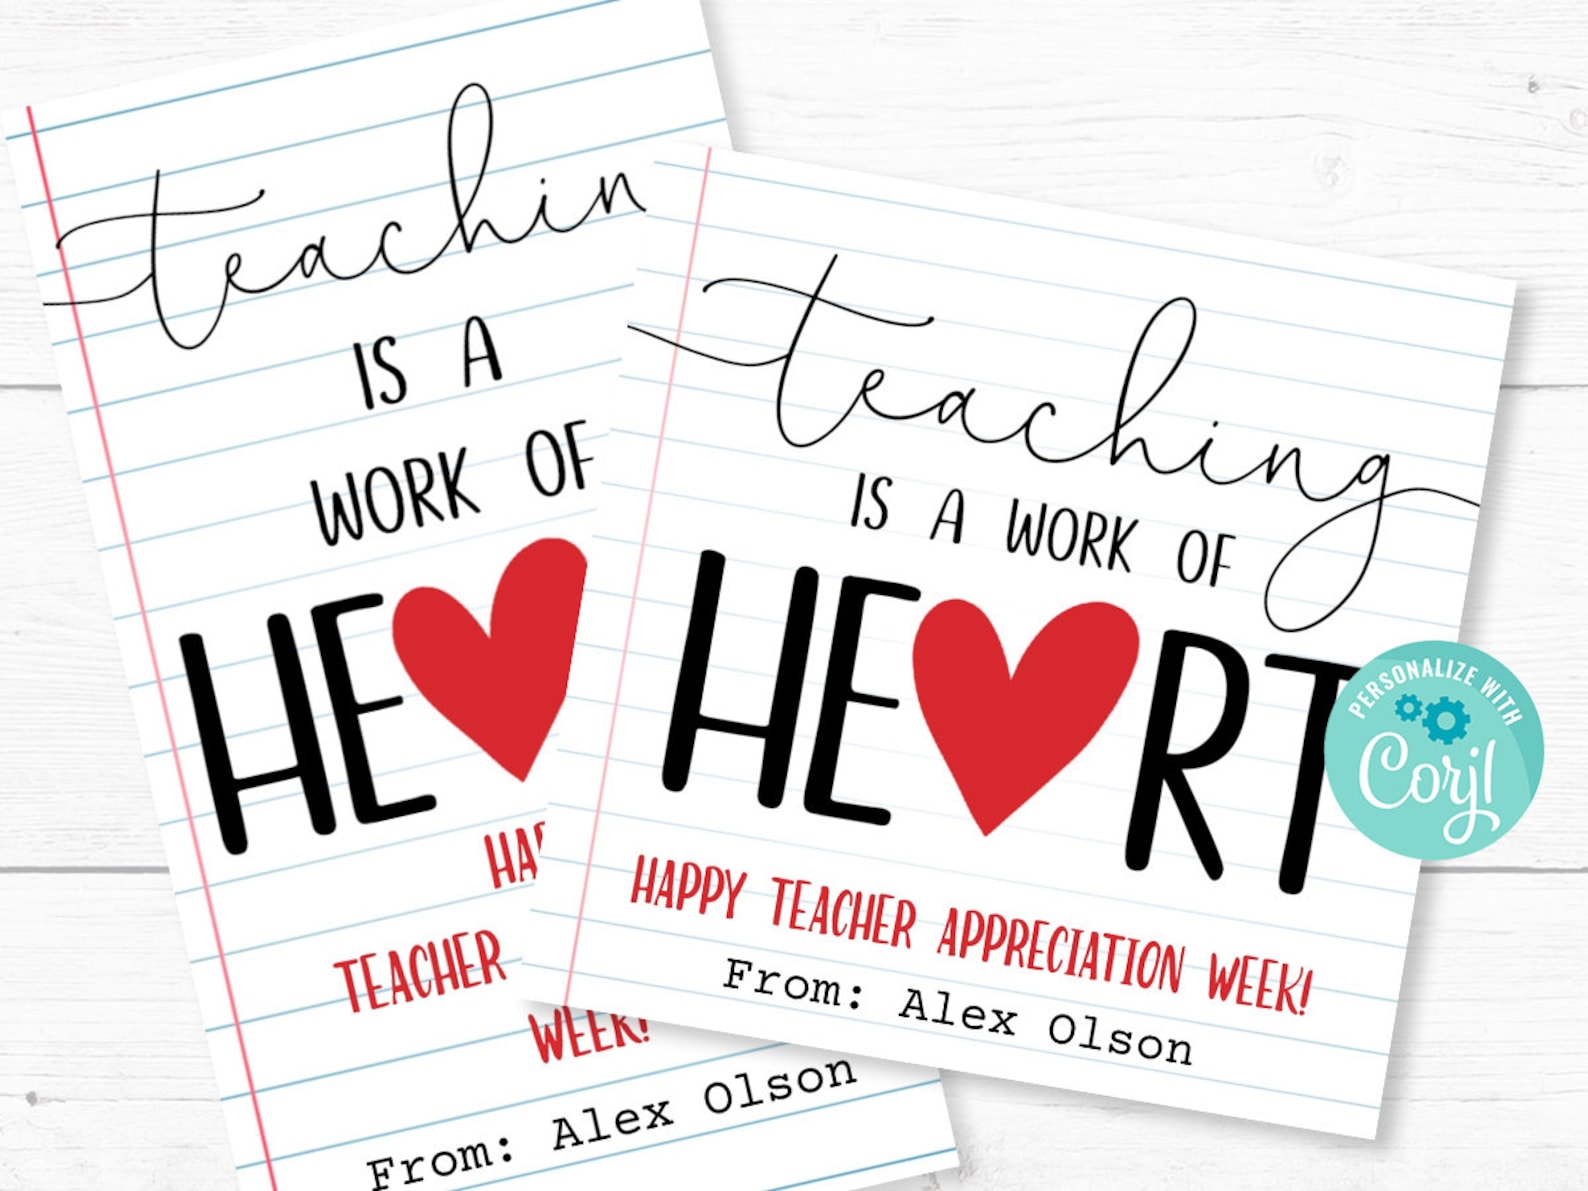 teachin
IS A
WORK OF
HE
HAP
TEACHER
WEEK!
From: Alex Olson
teaching
IS A WORK OF
HE❤RT
HAPPY TEACHER APPRECIATION WEEK!
From: Alex Olson
PERSONALIZE WITH
Corjl